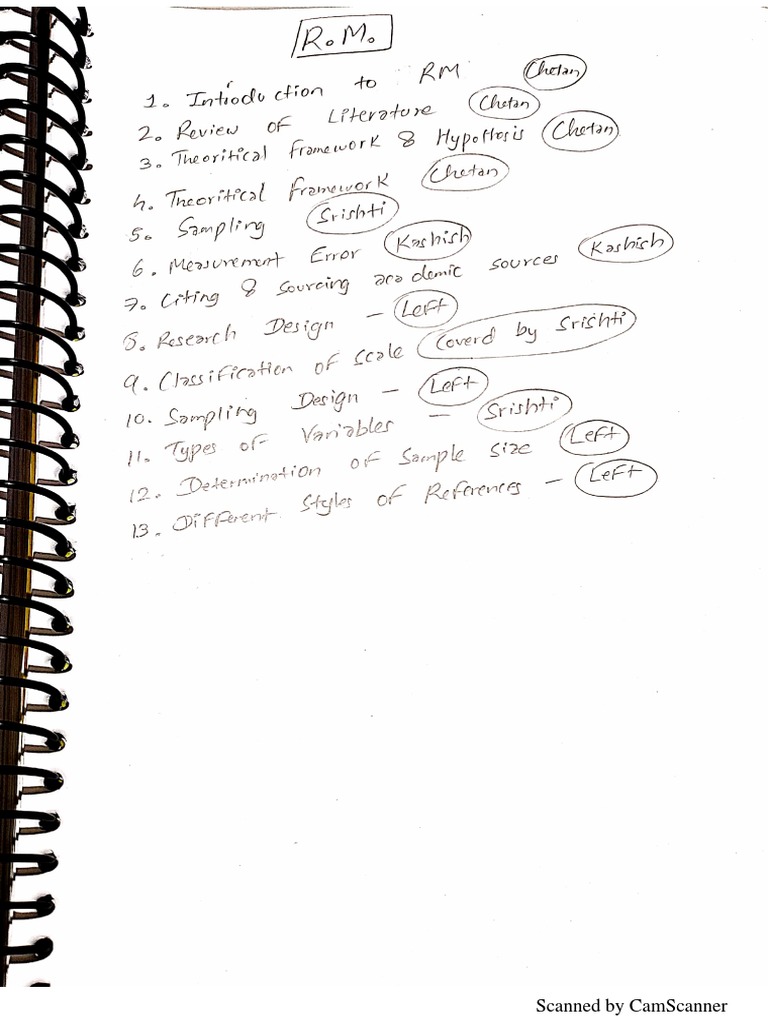 R.M.
1. Introduction to RM Chetan
2. Review of Literature Chetan
3. Theoritical framework & Hypothosis Chetan
4. Theoritical framework Chetan
5. Sampling Srishti
6. Measurement Error Kashish
7. Citing & sourcing academic sources Kashish
8. Research Design - Left
9. Classification of scale Coverd by Srishti
10. Sampling Design - Left
11. Types of Variables - Srishti
12. Determination of Sample size Left
13. Different Styles of References - Left
Scanned by CamScanner